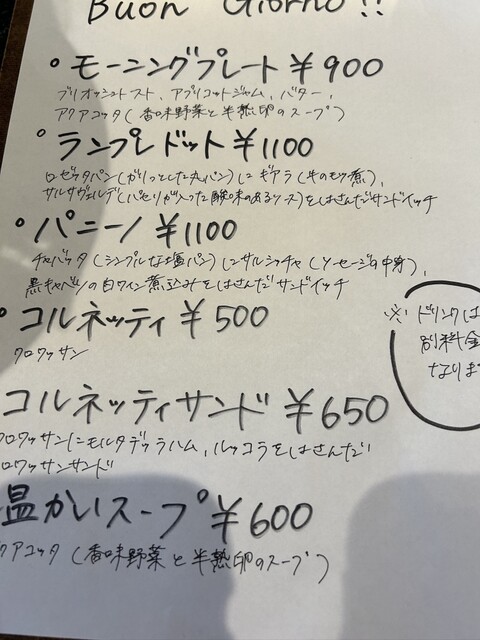 Buon Giorno!!
。モーニングプレート ¥900
ブリオッシュトースト、アプリコットジャム、バター、
アクアコッタ(香味野菜と半熟卵のスープ)
。ランプレドット ¥1100
ロゼッタパン(がりっとした丸パン)にギアラ(牛のモツ煮)、
サルサヴェルデ(パセリが入った酸味のあるソース)をはさんだサンドイッチ
。パニーノ ¥1100
チャバッタ(シンプルな塩パン)にサルシッチャ(ソーセージの中身)、
黒キャベツの白ワイン煮込みをはさんだサンドイッチ
。コルネッティ ¥500
クロワッサン
※ドリンクは
別料金
なりま
コルネッティサンド ¥650
クロワッサンにモルタデッラハム、ルッコラをはさんだ
クロワッサンサンド
温かいスープ ¥600
アクアコッタ(香味野菜と半熟卵のスープ)